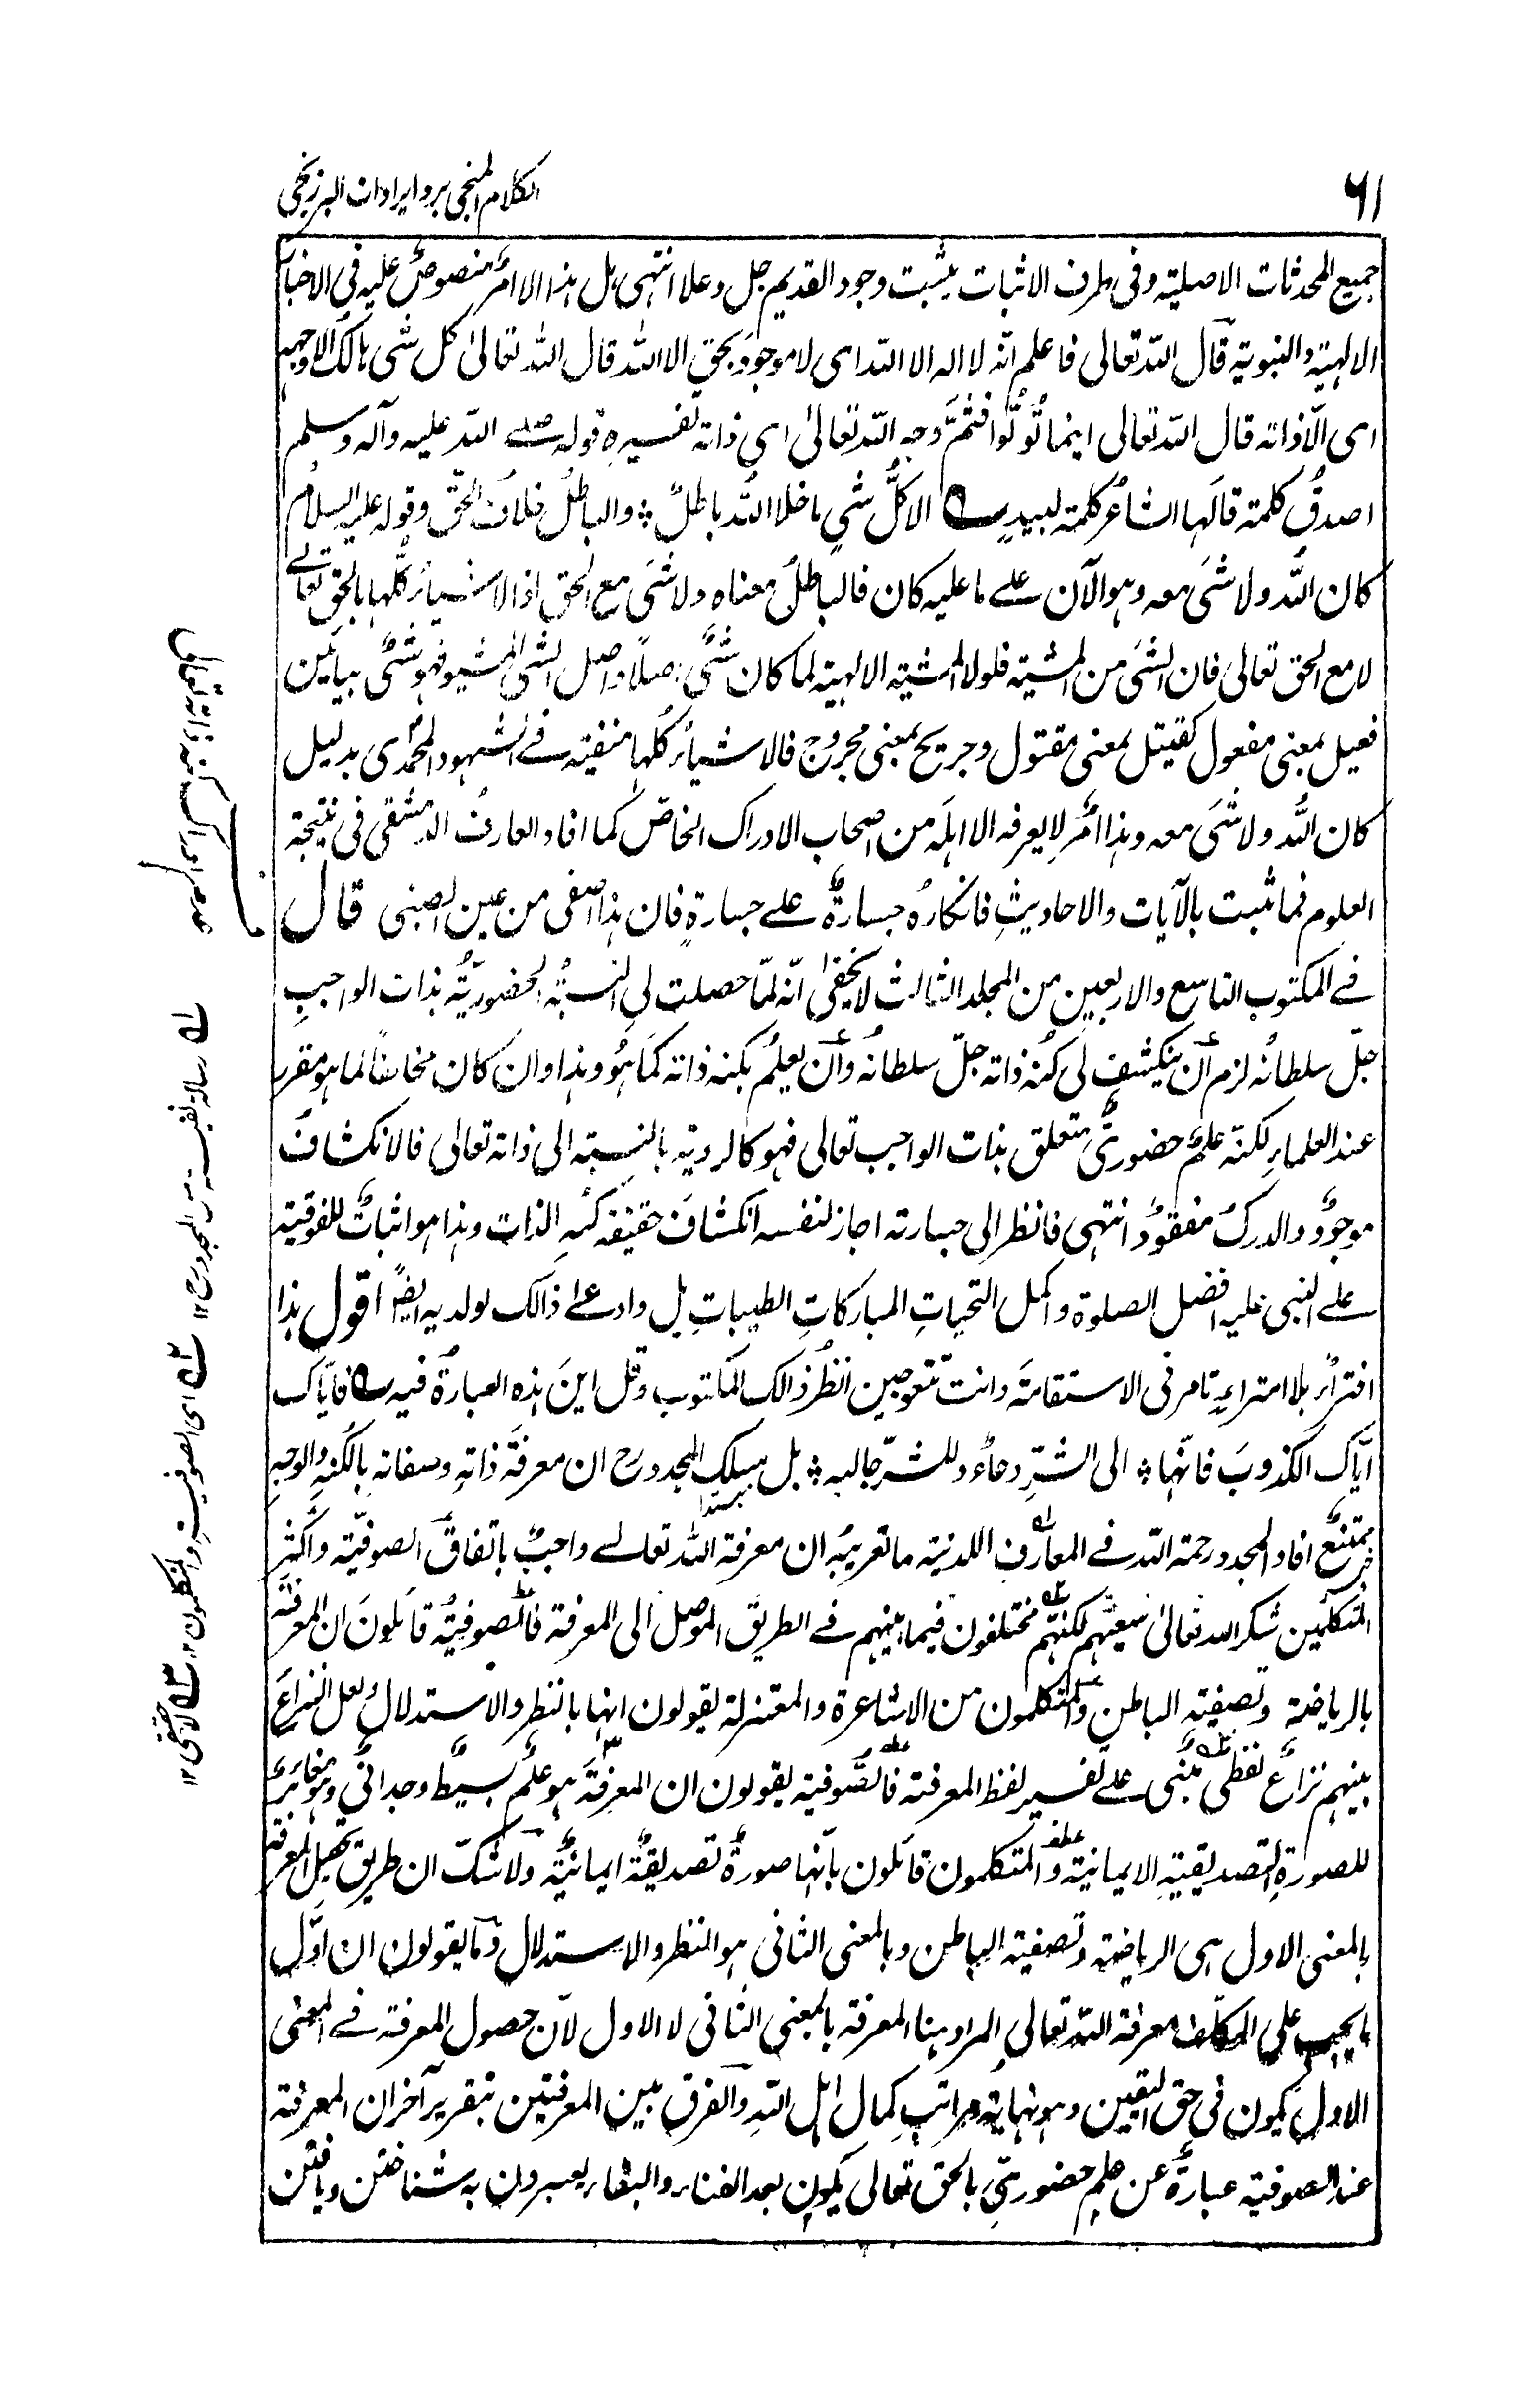 ٦١
الكلام المنجى برد ايرادات البرزنجى
جميع المحدثات الاصلية وفى طرف الاثبات يثبت وجود القديم جل وعلا انتهى بل هذا الامر منصوص عليه فى الاخبار
الالهية والنبوية قال الله تعالى فاعلم انه لا اله الا الله اى لا موجود بحق الا الله قال الله تعالىٰ كل شى هالك الا وجهه
اى الّا ذاته قال الله تعالى اينما تُوَلُّوا فثمَّ وجه الله تعالىٰ اى ذاته تفسيره قوله صلے الله عليه وآله وسلم
اصدقُ كلمة قالَها الشاعرُ كلمة لبيدٍ الا كلُّ شىءٍ ما خلا اللهَ باطلٌ والباطلُ خلافُ الحقّ وقوله عليه السلام
كان اللّٰه ولا شَى معه وهو الآن علے ما عليه كان فالباطلُ معناه ولا شَى مع الحق اذ الاشياءُ كلُّها بالحق تعالے
لا مع الحق تعالى فان الشَى من المشية فلولا المشية الالهية لما كان شىٌ اصلًا واصل الشى المشيو فهو شىٌ بيائين
فعيل بمعنى مفعول كقتيل بمعنى مقتول وجريح بمعنى مجروح فالاشياءُ كلُّها منفية فے الشهود المحمّدى بدليل
كان اللّٰه ولا شَى معه وهذا امرٌ لا يعرفه الا اهلَه من اصحاب الادراك الخاصّ كما افاد العارفُ الدمشقى فى نتيجة
العلوم فما ثبت بالآيات والاحاديثِ فانكارُه جسارةٌ علے جسارةٍ فان هذا اصفى من عين الصبنى قال
فے المكتوب التاسع والاربعين من المجلد الثالث لا يخفى انّه لمّا حصلت لى النسبةُ الحضوريّةُ بذات الواجبِ
جلّ سلطانُه لزم أن ينكشف لى كُنه ذاته جلّ سلطانُه وأن يعلمُ بكنه ذاته كمَا هُو وهذا وان كان مخالفاً لما هو مقرر
عند العلماءِ لكنّه علمٌ حضورىٌّ متعلق بذات الواجب تعالى فهو كالروية بالنسبة الى ذاته تعالى فالانكشافُ
موجودٌ والدركُ مفقودٌ انتهى فانظر الى جسارته اجاز لنفسه انكشافَ حقيقة كُنهِ الذات وهذا هو اثباتٌ للفوقية
علے النبى عليه افضل الصلوة واكمل التحياتِ المباركاتِ الطيباتِ بل وادعے ذالك لولديه ايضًا اقول هذا
افتراءٌ بلا امتراءٍ تامر فى الاستقامة وانت تتعوجين انظُر ذالك المكتوب وقل اينَ هذه العبارةُ فيه فايّاك
ايّاك الكذوبَ فانّها الى الشرِّ دعاءٌ وللشرّ جالبه بل مسلك المجدد رح ان معرفةَ ذاتهِ وصفاتهِ بالكُنهِ والوجهِ
ممتنعٌ افاد المجدد رحمة الله فے المعارف اللدنية ما تعريبُه ان معرفة اللّٰه تعالے واجبٌ باتفاق الصوفيّة واكثر
المتكلمين شكر الله تعالىٰ سعيَهم لكنّهم مختلفون فيما بينهم فے الطريق الموصل الى المعرفة فالصوفيةُ قائلونَ ان المعرفة
بالرياضة وتصفية الباطن والمتكلمون من الاشاعرة والمعتزلة يقولون انها بالنظر والاستدلال ولعل النزاعَ
بينهم نزاعٌ لفظىٌ مبنى علے تفسير لفظ المعرفة فالصوفية يقولون ان المعرفةَ هو علمٌ بسيطٌ وجدانىٌ وهو مغائرٌ
للصورةِ التصديقيةِ الايمانية والمتكلمون قائلون بأنها صورةٌ تصديقيّةٌ ايمانيّةٌ ولا شكّ ان طريق تحصيل المعرفة
بالمعنى الاول هى الرياضة وتصفية الباطن وبالمعنى الثانى هو النظر والاستدلال وما يقولون ان اوّل
ما يجب على المكلف معرفة الله تعالى المراد هنا المعرفة بالمعنى الثانى لا الاول لأن حصول المعرفة فے المعنى
الاول يكون فى حق اليقين وهو نهاية مراتب كمال اهل الله والفرق بين المعرفتين بتقرير آخر ان المعرفة
عند الصوفية عبارةٌ عن علمٍ حضورىٍّ بالحق تعالى يكون بعد الفناء والبقاء يعبرون به شناختن ويافتن
له رسالة نفيسة من المجدد رح ١٢
له اى الصوفية والمتكلمون ١٢
له كالا حقيقى ١٢